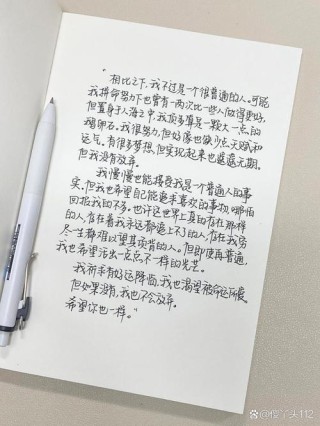 “
相比之下,我不过是个很普通的人。可能
我拼命努力下也曾有一两次比一些人做得更好,
但置身于人海之中,我顶多算是一颗大一点的
鹅卵石。我很努力,但好像也缺少点天赋和
运气,有很多梦想,但实现起来也遥遥无期。
但我没有放弃。
我慢慢也能接受我是个普通人的事
实,但我也希望自己能追寻喜欢的事物,哪怕
回报我的不多。也许这世界上真的存在那样
的人,存在着我永远都追上不了的人,存在我穷
尽一生都难以望其项背的人。但即使再普通,
我也希望活出一点点不一样的光芒。
我祈求有好运降临,我也渴望被命运所爱,
但如果没有,我也不会放弃。
希望你也一样。”
@傻丫头112